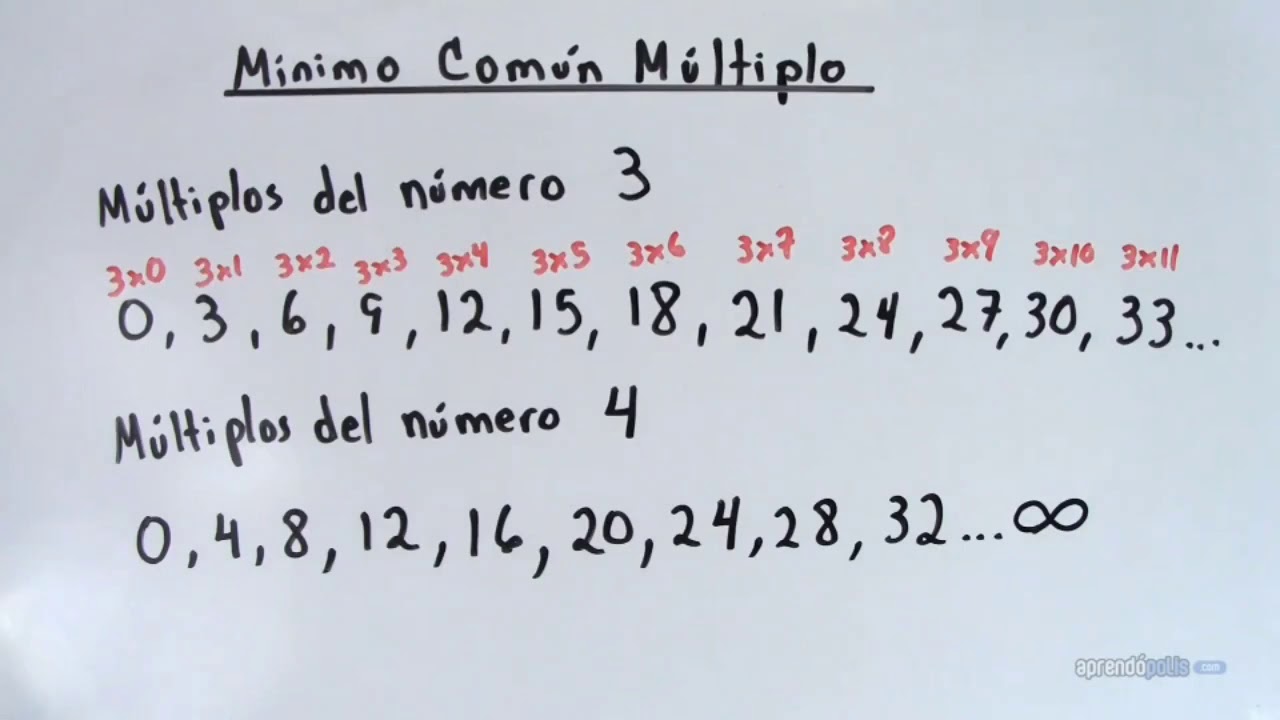 Mínimo Común Múltiplo
Múltiplos del número 3
3x0 3x1 3x2 3x3 3x4 3x5 3x6 3x7 3x8 3x9 3x10 3x11
0, 3, 6, 9, 12, 15, 18, 21, 24, 27, 30, 33...
Múltiplos del número 4
0, 4, 8, 12, 16, 20, 24, 28, 32... ∞
aprendópolis .com